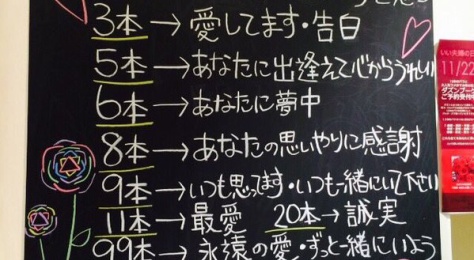 3本→愛してます・告白
5本→あなたに出逢えて心からうれしい
6本→あなたに夢中
8本→あなたの思いやりに感謝
9本→いつも思ってます・いつも一緒にいて下さい
11本→最愛 20本→誠実
99本→永遠の愛・ずっと一緒にいよう
いい夫婦の日
11/22
ダズンブーケ
ご予約受付中